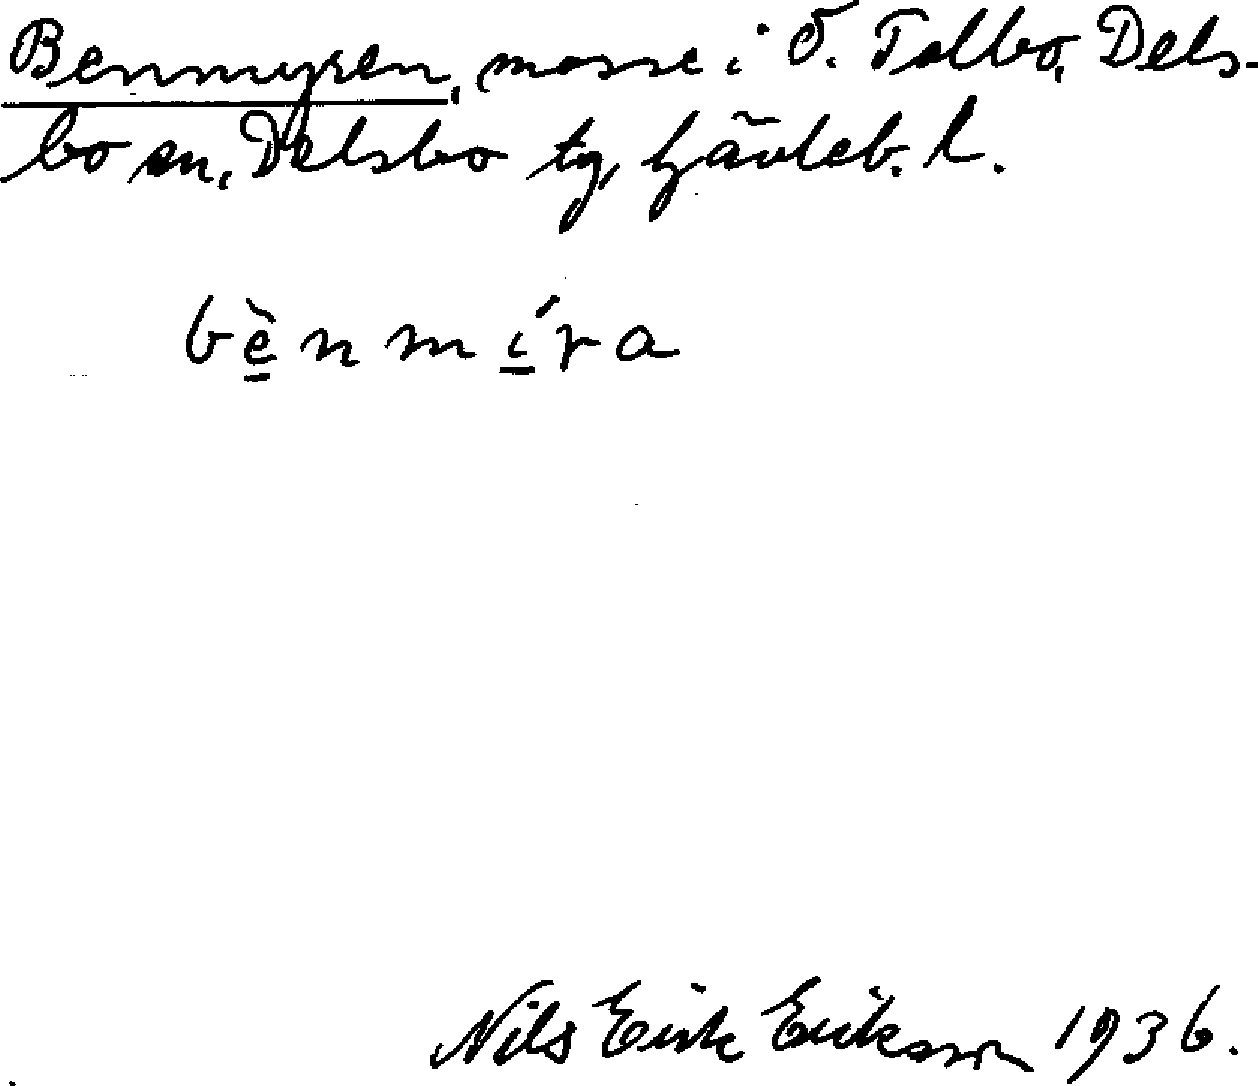 Bennmyren, mosse i Ö. Tolbo, Dels-
bo sn, Delsbo tg, Gävleb. l.
bènmíra
Nils Erik Eriksson 1936.